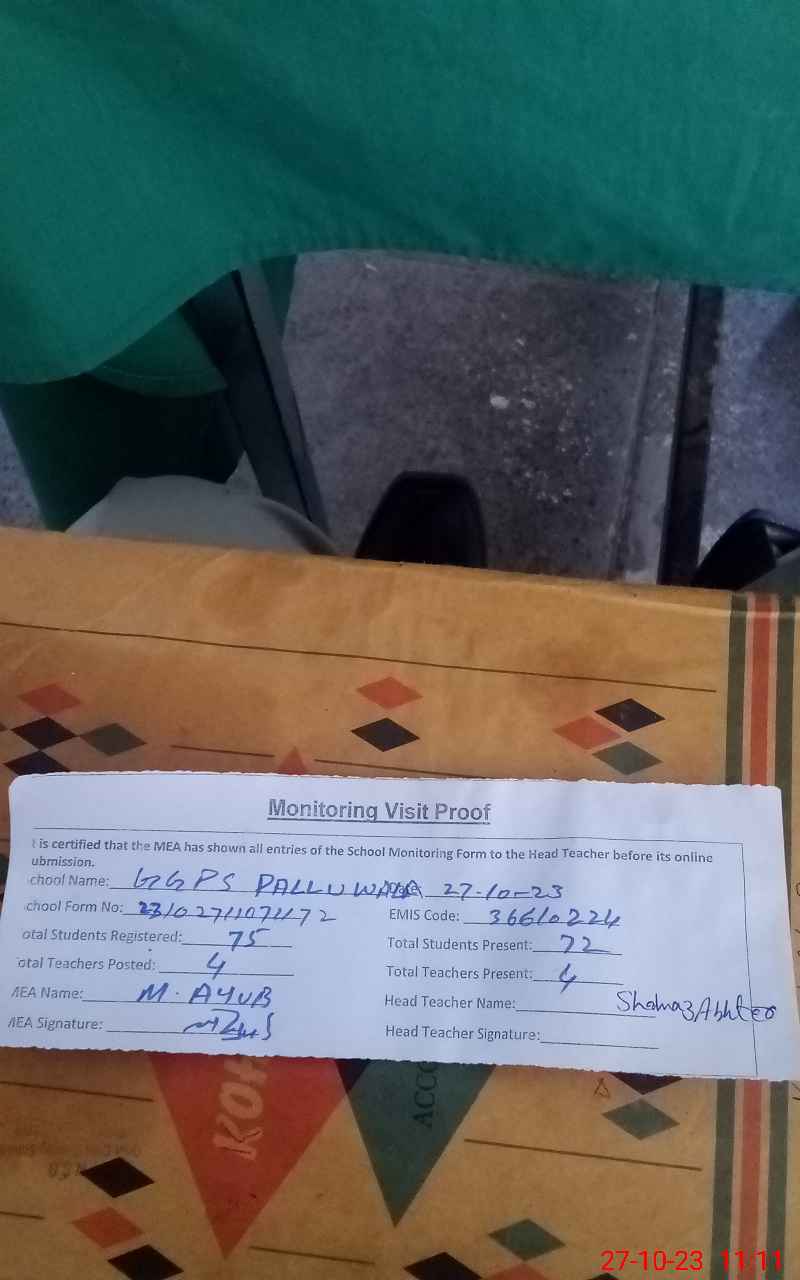 Monitoring Visit Proof
t is certified that the MEA has shown all entries of the School Monitoring Form to the Head Teacher before its online
ubmission.
chool Name: GGPS PALLUWALA 27-10-23
chool Form No: EMIS Code: 36610224
otal Students Registered: 75 Total Students Present: 72
otal Teachers Posted: 4 Total Teachers Present: 4
MEA Name: M. AYUB Head Teacher Name: Shahnaz Akhter
MEA Signature: Head Teacher Signature:
KOH
ACCO
27-10-23 11:11